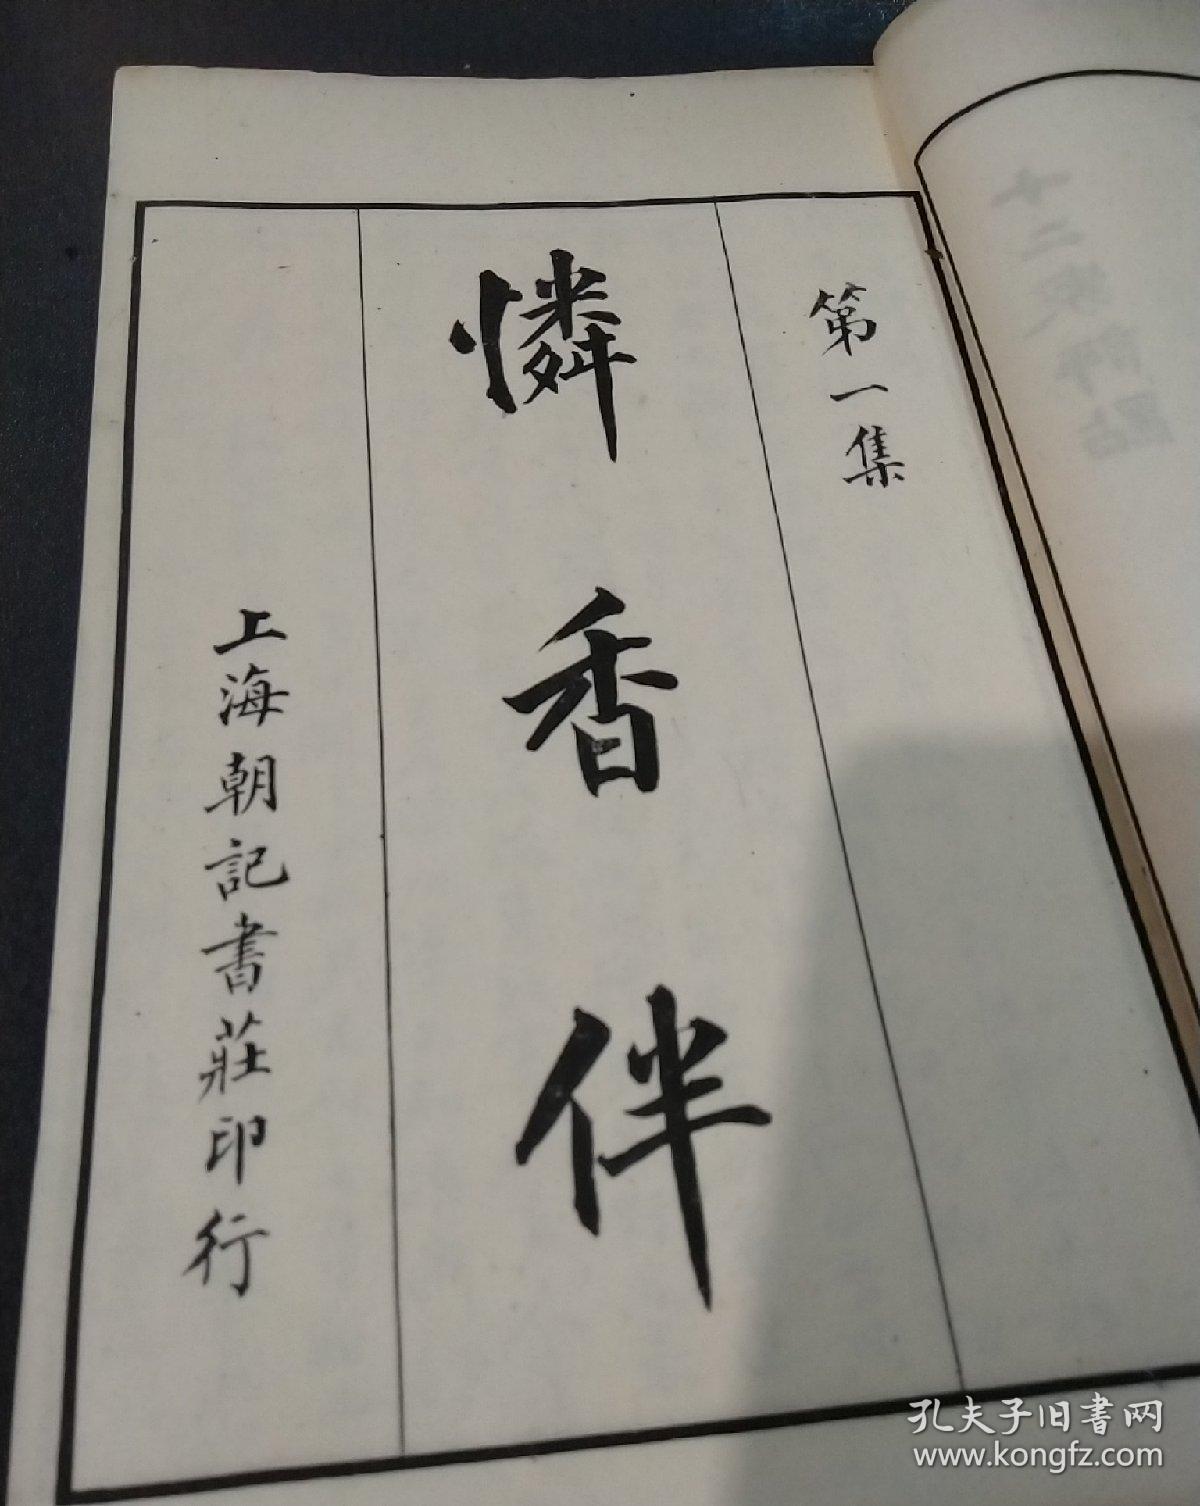 第一集
憐香伴
上海朝記書莊印行
孔夫子旧書网
www.kongfz.com